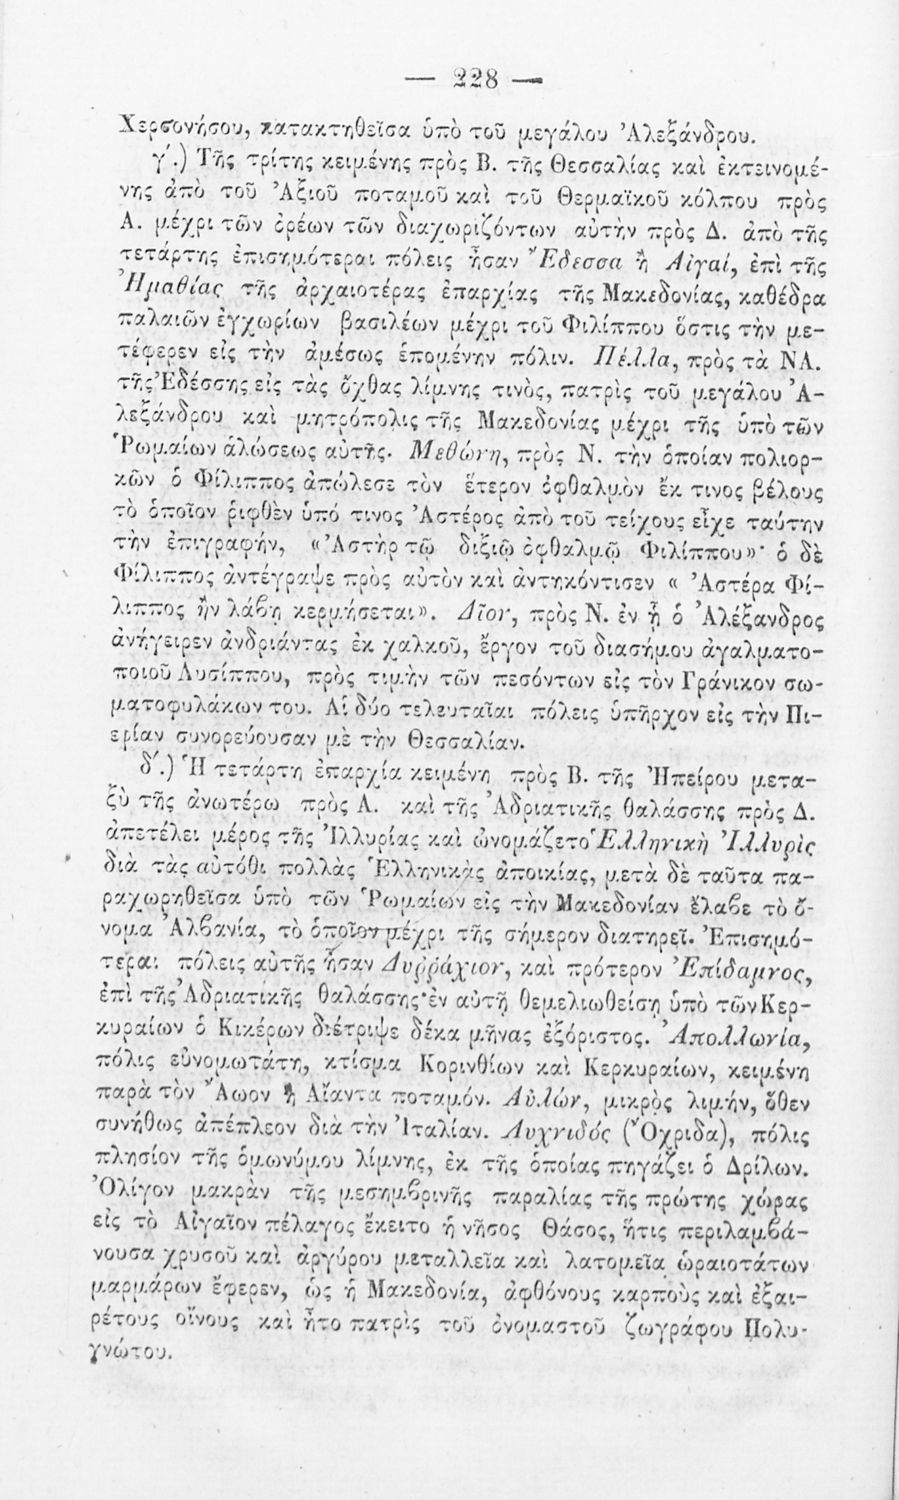 — 228 —
Χερσονήσου, κατακτηθεῖσα ὑπὸ τοῦ μεγάλου Ἀλεξάνδρου.
γ΄.) Τῆς τρίτης κειμένης πρὸς Β. τῆς Θεσσαλίας καὶ ἐκτεινομέ-
νης ἀπὸ τοῦ Ἀξιοῦ ποταμοῦ καὶ τοῦ Θερμαϊκοῦ κόλπου πρὸς
Α. μέχρι τῶν ὀρέων τῶν διαχωριζόντων αὐτὴν πρὸς Δ. ἀπὸ τῆς
τετάρτης ἐπισημότεραι πόλεις ἦσαν Ἔδεσσα ἢ Αἰγαί, ἐπὶ τῆς
Ἠμαθίας τῆς ἀρχαιοτέρας ἐπαρχίας τῆς Μακεδονίας, καθέδρα
παλαιῶν ἐγχωρίων βασιλέων μέχρι τοῦ Φιλίππου ὅστις τὴν με-
τέφερεν εἰς τὴν ἀμέσως ἑπομένην πόλιν. Πέλλα, πρὸς τὰ ΝΑ.
τῆς Ἐδέσσης εἰς τὰς ὄχθας λίμνης τινὸς, πατρὶς τοῦ μεγάλου Ἀ-
λεξάνδρου καὶ μητρόπολις τῆς Μακεδονίας μέχρι τῆς ὑπὸ τῶν
Ῥωμαίων ἁλώσεως αὐτῆς. Μεθώνη, πρὸς Ν. τὴν ὁποίαν πολιορ-
κῶν ὁ Φίλιππος ἀπώλεσε τὸν ἕτερον ὀφθαλμὸν ἔκ τινος βέλους
τὸ ὁποῖον ῥιφθὲν ὑπό τινος Ἀστέρος ἀπὸ τοῦ τείχους εἶχε ταύτην
τὴν ἐπιγραφήν, «Ἀστὴρ τῷ διξιῷ ὀφθαλμῷ Φιλίππου»· ὁ δὲ
Φίλιππος ἀντέγραψε πρὸς αὐτὸν καὶ ἀντηκόντισεν « Ἀστέρα Φί-
λιππος ἢν λάβῃ κερμήσεται». Δῖον, πρὸς Ν. ἐν ᾗ ὁ Ἀλέξανδρος
ἀνήγειρεν ἀνδριάντας ἐκ χαλκοῦ, ἔργον τοῦ διασήμου ἀγαλματο-
ποιοῦ Λυσίππου, πρὸς τιμὴν τῶν πεσόντων εἰς τὸν Γράνικον σω-
ματοφυλάκων του. Αἱ δύο τελευταῖαι πόλεις ὑπῆρχον εἰς τὴν Πι-
ερίαν συνορεύουσαν μὲ τὴν Θεσσαλίαν.
δ΄.) Ἡ τετάρτη ἐπαρχία κειμένη πρὸς Β. τῆς Ἠπείρου μετα-
ξὺ τῆς ἀνωτέρω πρὸς Α. καὶ τῆς Ἀδριατικῆς θαλάσσης πρὸς Δ.
ἀπετέλει μέρος τῆς Ἰλλυρίας καὶ ὠνομάζετο Ἑλληνικὴ Ἰλλυρὶς
διὰ τὰς αὐτόθι πολλὰς Ἑλληνικὰς ἀποικίας, μετὰ δὲ ταῦτα πα-
ραχωρηθεῖσα ὑπὸ τῶν Ῥωμαίων εἰς τὴν Μακεδονίαν ἔλαβε τὸ ὄ-
νομα Ἀλβανία, τὸ ὁποῖον μέχρι τῆς σήμερον διατηρεῖ. Ἐπισημό-
τεραι πόλεις αὐτῆς ἦσαν Δυῤῥάχιον, καὶ πρότερον Ἐπίδαμνος,
ἐπὶ τῆς Ἀδριατικῆς θαλάσσης· ἐν αὐτῇ θεμελιωθείσῃ ὑπὸ τῶν Κερ-
κυραίων ὁ Κικέρων διέτριψε δέκα μῆνας ἐξόριστος. Ἀπολλωνία,
πόλις εὐνομωτάτη, κτίσμα Κορινθίων καὶ Κερκυραίων, κειμένη
παρὰ τὸν Ἄωον ἢ Αἴαντα ποταμόν. Αὐλών, μικρὸς λιμήν, ὅθεν
συνήθως ἀπέπλεον διὰ τὴν Ἰταλίαν. Λυχνιδός (Ὄχριδα), πόλις
πλησίον τῆς ὁμωνύμου λίμνης, ἐκ τῆς ὁποίας πηγάζει ὁ Δρίλων.
Ὀλίγον μακρὰν τῆς μεσημβρινῆς παραλίας τῆς πρώτης χώρας
εἰς τὸ Αἰγαῖον πέλαγος ἔκειτο ἡ νῆσος Θάσος, ἥτις περιλαμβά-
νουσα χρυσοῦ καὶ ἀργύρου μεταλλεῖα καὶ λατομεῖα ὡραιοτάτων
μαρμάρων ἔφερεν, ὡς ἡ Μακεδονία, ἀφθόνους καρποὺς καὶ ἐξαι-
ρέτους οἴνους καὶ ἦτο πατρὶς τοῦ ὀνομαστοῦ ζωγράφου Πολυ-
γνώτου.